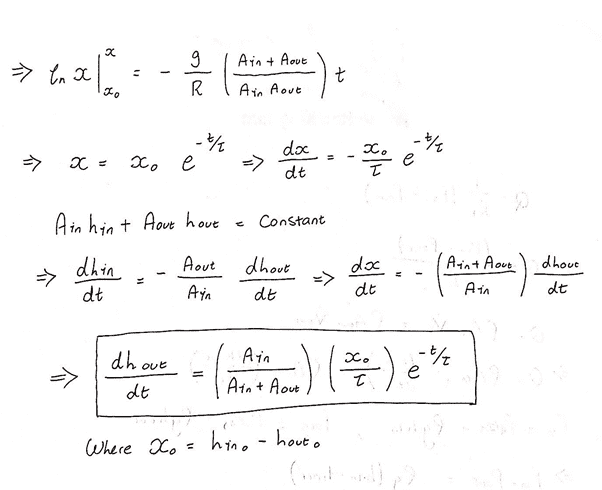 ⇒ ln x |_{x₀}^{x} = - g/R ( (Ain + Aout) / (Ain Aout) ) t
⇒ x = x₀ e^{-t/τ} ⇒ dx/dt = - x₀/τ e^{-t/τ}
Ain hin + Aout hout = Constant
⇒ dhin/dt = - Aout/Ain dhout/dt ⇒ dx/dt = - ( (Ain + Aout) / Ain ) dhout/dt
⇒ dhout/dt = ( Ain / (Ain + Aout) ) ( x₀/τ ) e^{-t/τ}
Where x₀ = hin₀ - hout₀